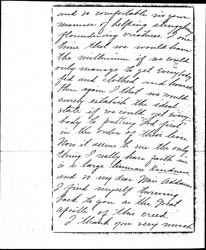 and so comfortable in your
manner of helping struggling
floundering creatures. At one
time that we would have
the millenium if we could
only manage to get everybody
fed and clothed and housed
then again I that we would
surely establish the ideal
state if we could get every-
body to putting the
in the order of their
Now it seems to me the only
thing I really have faith in
is a large human kindness
and so my dear Miss Addams
I find myself turning
back to you as the great
apostle of this creed.
I thank you very much